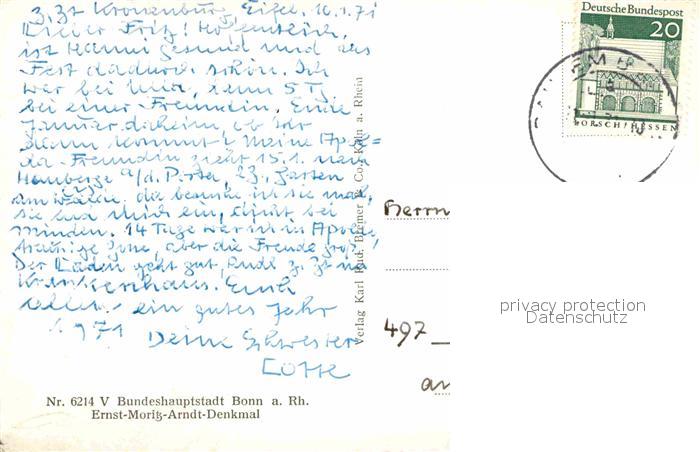 z. Zt Kronenburg, Eifel, 10.1.71
Lieber Fritz! Hoffentlich
ist Hanni gesund und das
Fest dadurch schön. Ich
war bei mir, zum
bei einer Freundin. Ende
Januar daheim, ob Ihr
dann kommt? Meine Apol-
da-Freundin zieht 15.1. nach
a/d. Porta, 23, Garten
am da besuche ich sie mal,
sie lud mich ein, liegt bei
Minden. 14 Tage war ich in Apolda
traurige Zone, aber die Freude groß!
Der Laden geht gut, z. Zt im
Krankenhaus. Euch
allen ein gutes Jahr
1971 Deine Schwester
Lotte
Nr. 6214 V Bundeshauptstadt Bonn a. Rh.
Ernst-Moritz-Arndt-Denkmal
Verlag Karl Rud. Bremer & Co., Köln a. Rhein
Deutsche Bundespost
20
LORSCH/HESSEN
Herrn
497
an
privacy protection
Datenschutz